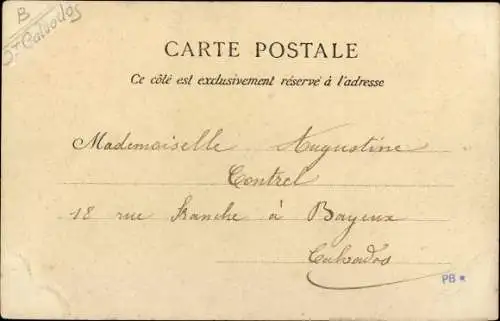 B
Calvados
CARTE POSTALE
Ce côté est exclusivement réservé à l'adresse
Mademoiselle Augustine
Contrel
18 rue Franche à Bayeux
Calvados
PB*